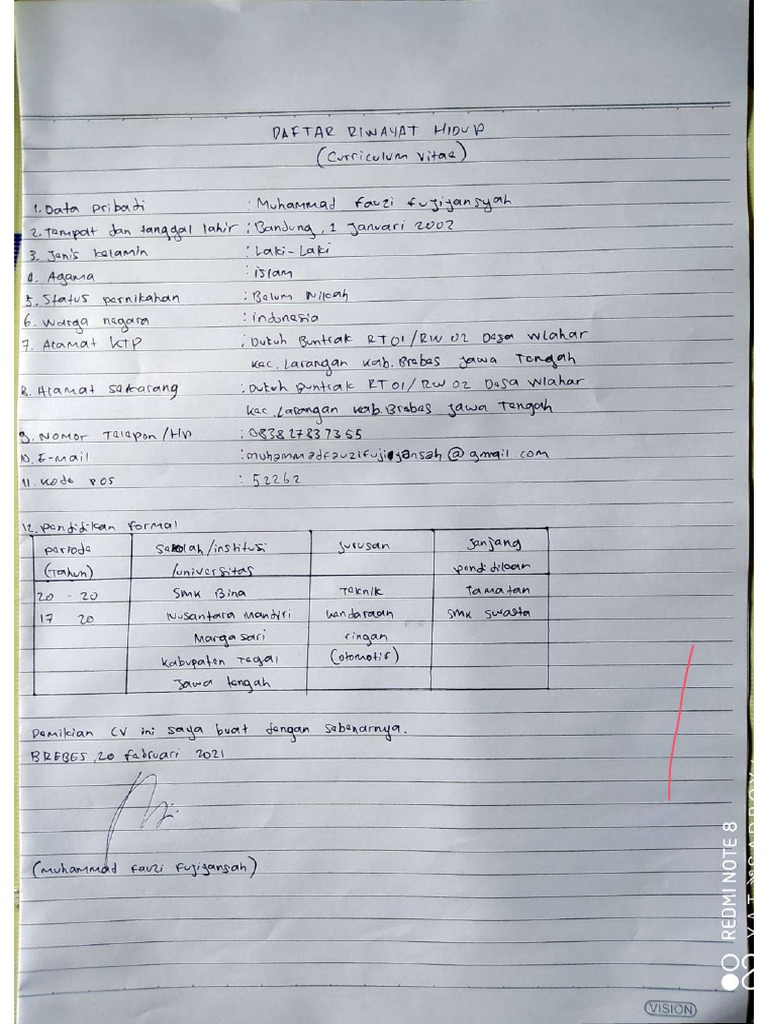 DAFTAR RIWAYAT HIDUP
(Curriculum vitae)
1. Data pribadi : Muhammad Fauzi Fujiyansyah
2. Tempat dan tanggal lahir : Bandung, 1 Januari 2002
3. Jenis kelamin : Laki-Laki
4. Agama : islam
5. Status pernikahan : Belum Nikah
6. Warga negara : indonesia
7. Alamat KTP : Dukuh Buntrak RT 01/RW 02 Desa Wlahar
Kec. Larangan Kab. Brebes Jawa Tengah
8. Alamat sekarang : Dukuh Buntrak RT 01/RW 02 Desa Wlahar
Kec. Larangan Kab. Brebes Jawa Tengah
9. Nomor Telepon/Hp : 083827837355
10. E-mail : muhammadfauzifujiyansah@gmail com
11. Kode pos : 52262
12. Pendidikan formal
periode sekolah/institusi Jurusan Jenjang
(Tahun) /universitas pendidikan
20 - 20 SMK Bina Teknik Tamatan
17 20 Nusantara Mandiri kendaraan SMK swasta
Margasari ringan
Kabupaten Tegal (otomotif)
Jawa tengah
Demikian CV ini saya buat dengan sebenarnya.
BREBES, 20 Februari 2021
(Muhammad Fauzi Fujiyansah)
REDMI NOTE 8
VISION